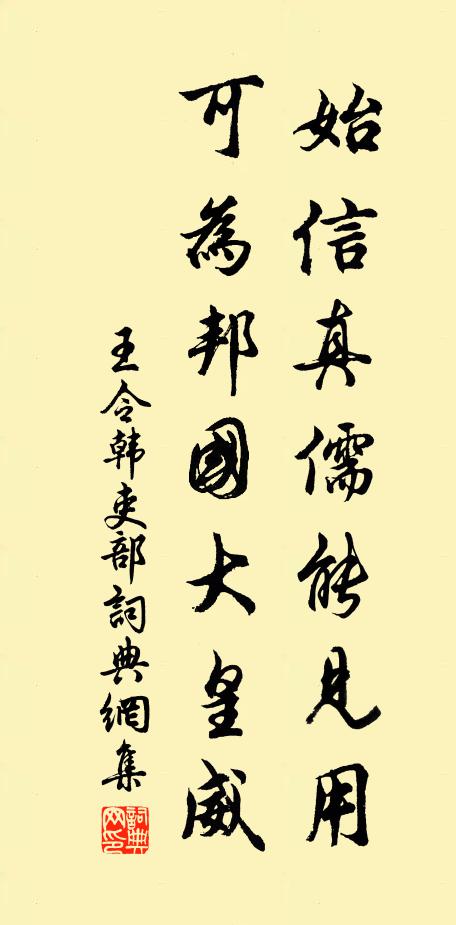 始信真儒能見用
可為邦國大皇威
王令韩吏部詞典網集
詞典網印